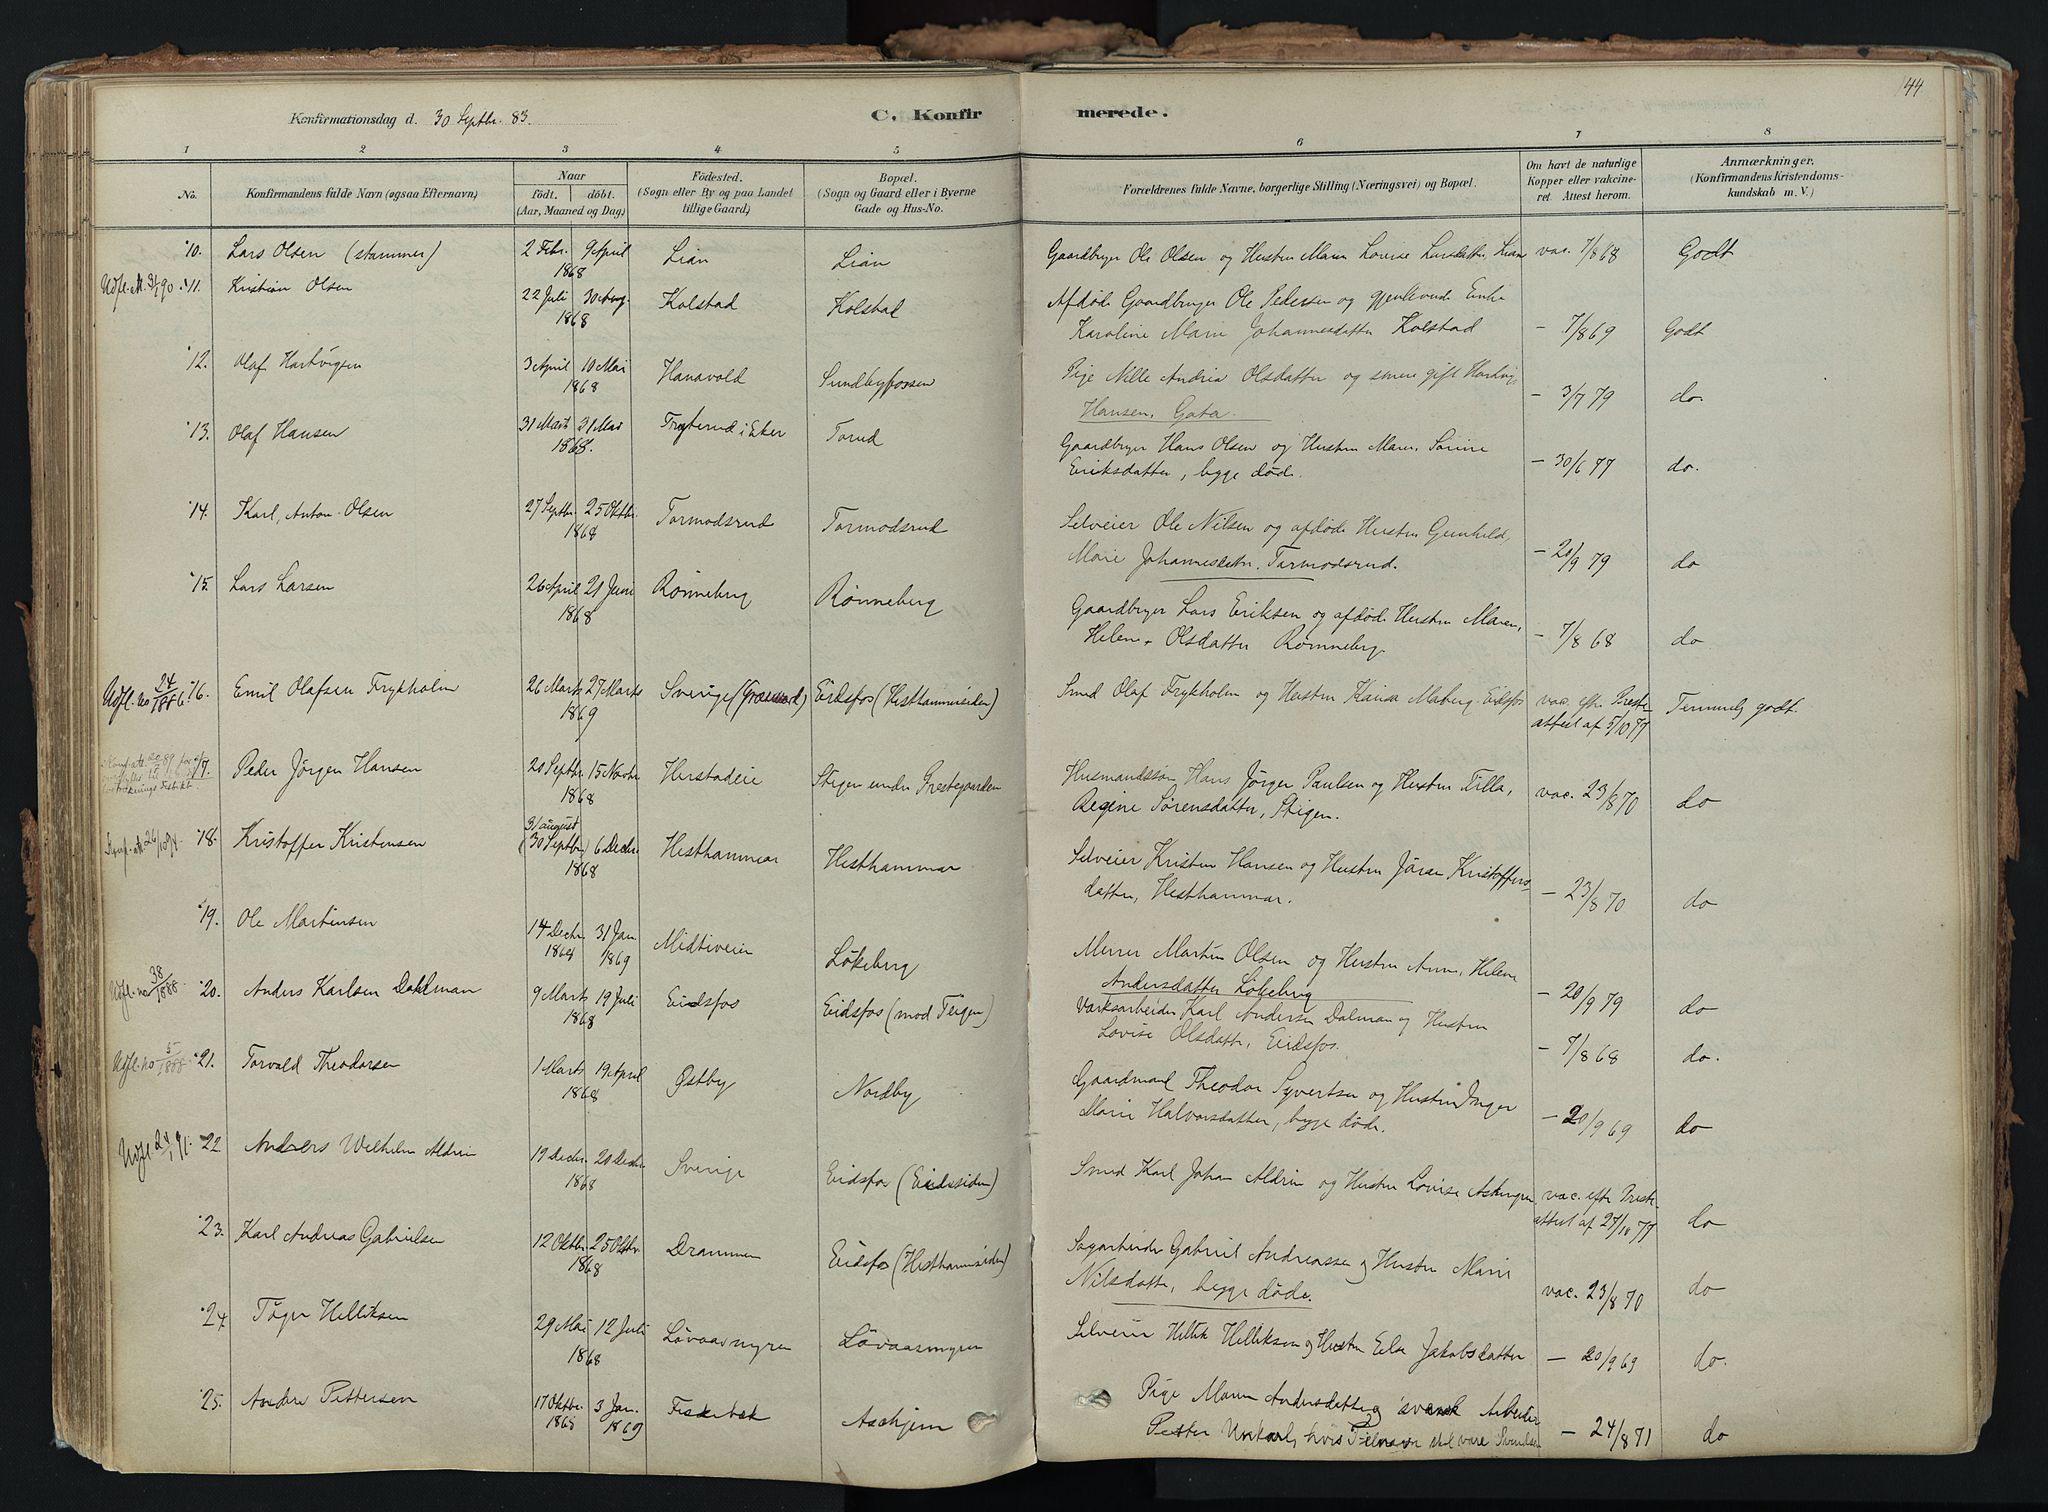 144
Konfirmationsdag d. 30 Septbr. 83.
C. Konfirmerede.
1 2 3 4 5 6 7 8
No.
Konfirmandens fulde Navn (ogsaa Efternavn)
Naar
født. døbt.
(Aar, Maaned og Dag)
Födested.
(Sogn eller By og paa Landet
tillige Gaard)
Bopæl.
(Sogn og Gaard eller i Byerne
Gade og Hus-No.
Forældrenes fulde Navne, borgerlige Stilling (Næringsvei) og Bopæl.
Om havt de naturlige
Kopper eller vakcine-
ret. Attest herom.
Anmærkninger.
(Konfirmandens Kristendoms-
kundskab m. V.)
10. Lars Olsen (stammer) 2 Febr. 9 April 1868 Lian Lian Gaardbruger Ole Olsen og Hustru Maren Lovise Larsdatter, Lian vac. 7/8 68 Godt
Udfl. A. 3/1 90. 11. Kristian Olsen 22 Juli 30 Aug. 1868 Kolstad Kolstad Afdøde Gaardbruger Ole Pedersen og gjenlevende Enke
Karoline Marie Johannesdatter Kolstad – 7/8 69 Godt
12. Olaf Hartvigsen 3 April 10 Mai 1868 Hanavold Sundbyfossen Pige Nille Andrea Olsdatter og senere gift Hartvig
Hansen, Gata. – 3/7 79 do.
13. Olaf Hansen 31 Mart 21 Mai 1868. Frøterud i Eker Torud Gaardbruger Hans Olsen og Hustru Maren Sorine
Eriksdatter, begge døde. – 30/6 77 do.
14. Karl Anton Olsen 27 Septbr. 25 Oktbr. 1868 Tormodsrud Tormodsrud Selveier Ole Nilsen og afdøde Hustru Gunhild
Marie Johannesdatter, Tormodsrud. – 20/9 79 do
15. Lars Larsen 26 April 21 Juni 1868 Rønneberg Rønneberg Gaardbruger Lars Eriksen og afdøde Hustru Maren
Helene Olsdatter Rønneberg. – 7/8 68 do
Udfl. no 24/1886. 16. Emil Olafsen Frykholm 26 Marts 27 Marts 1869 Sverige Eidsfos (Hesthammersiden) Smed Olaf Frykholm og Hustru Kaisa Maberg Eidsfos vac. efter Preste
attest af 5/10 77 Temmelig godt.
17. Peder Jørgen Hansen 20 Septbr. 15 Novbr. 1868 Herstadeie Stigen under Prestegaarden Husmandssøn Hans Jørgen Paulsen og Hustru Tilla
Regine Sørensdatter, Stigen. vac. 23/8 70 do
18. Kristoffer Kristensen 31 august (30 Septbr.) 6 Decbr. 1868 Hesthammar Hesthammar Selveier Kristen Hansen og Hustru Jøran Kristoffers-
datter, Hesthammar. – 23/8 70 do
19. Ole Martinsen 14 Decbr. 1868 31 Jan. 1869 Midtiveien Løkeberg Murer Martin Olsen og Hustru Anne Helene
Andersdatter Løkeberg – 20/9 79 do
Udfl. no 38/1888. 20. Anders Karlsen Dahlman 9 Marts 19 Juli 1868 Eidsfos Eidsfos (mod Teigen) Værksarbeider Karl Andersen Dalman og Hustru
Lovise Olsdatter, Eidsfos. – 7/8 68 do.
Udfl. no 5/1888 21. Torvald Theodorsen 1 Marts 19 April 1868 Østby Nordby Gaardmand Theodor Syvertsen og Hustru Inger
Marie Halvorsdatter, begge døde. – 20/9 69 do
22. Anders Wilhelm Aldrin 19 Decbr. 20 Decbr. 1868 Sverige Eidsfos (Eidssiden) Smed Karl Johan Aldrin og Hustru Lovise vac. efter Prest
attest af 27/10 79 do
23. Karl Andreas Gabrielsen 12 Oktbr. 25 Oktbr. 1868 Drammen Eidsfos (Hesthammersiden) Sagarbeider Gabriel Andreassen og Hustru Marie
Nilsdatter, begge døde. vac. 23/8 70 do
24. Tøger Helliksen 29 Mai 12 Juli 1868 Løvaasmyren Løvaasmyren Selveier Hellik Helliksen og Hustru Else Jakobsdatter – 20/9 69 do.
25. Andre Pettersen 17 Oktbr. 1868 3 Jan. 1869 Fiskebæk Aschjem Pige Maren Andersdatter og svensk Arbeider
Petter hvis skal være – 24/8 71 do